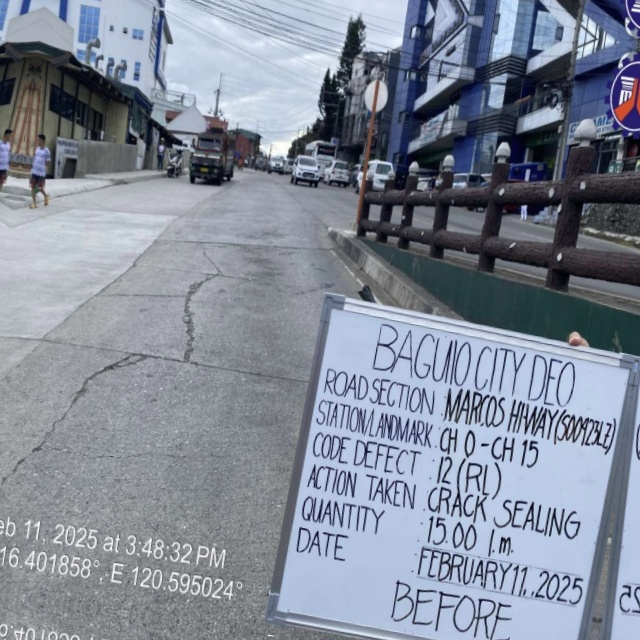 BAGUIO CITY DEO
ROAD SECTION : MARCOS HIWAY (S00423LZ)
STATION/LANDMARK : CH 0 - CH 15
CODE DEFECT : 12 (RL)
ACTION TAKEN : CRACK SEALING
QUANTITY : 15.00 l.m.
DATE : FEBRUARY 11, 2025
BEFORE
eb 11, 2025 at 3:48:32 PM
16.401858°, E 120.595024°